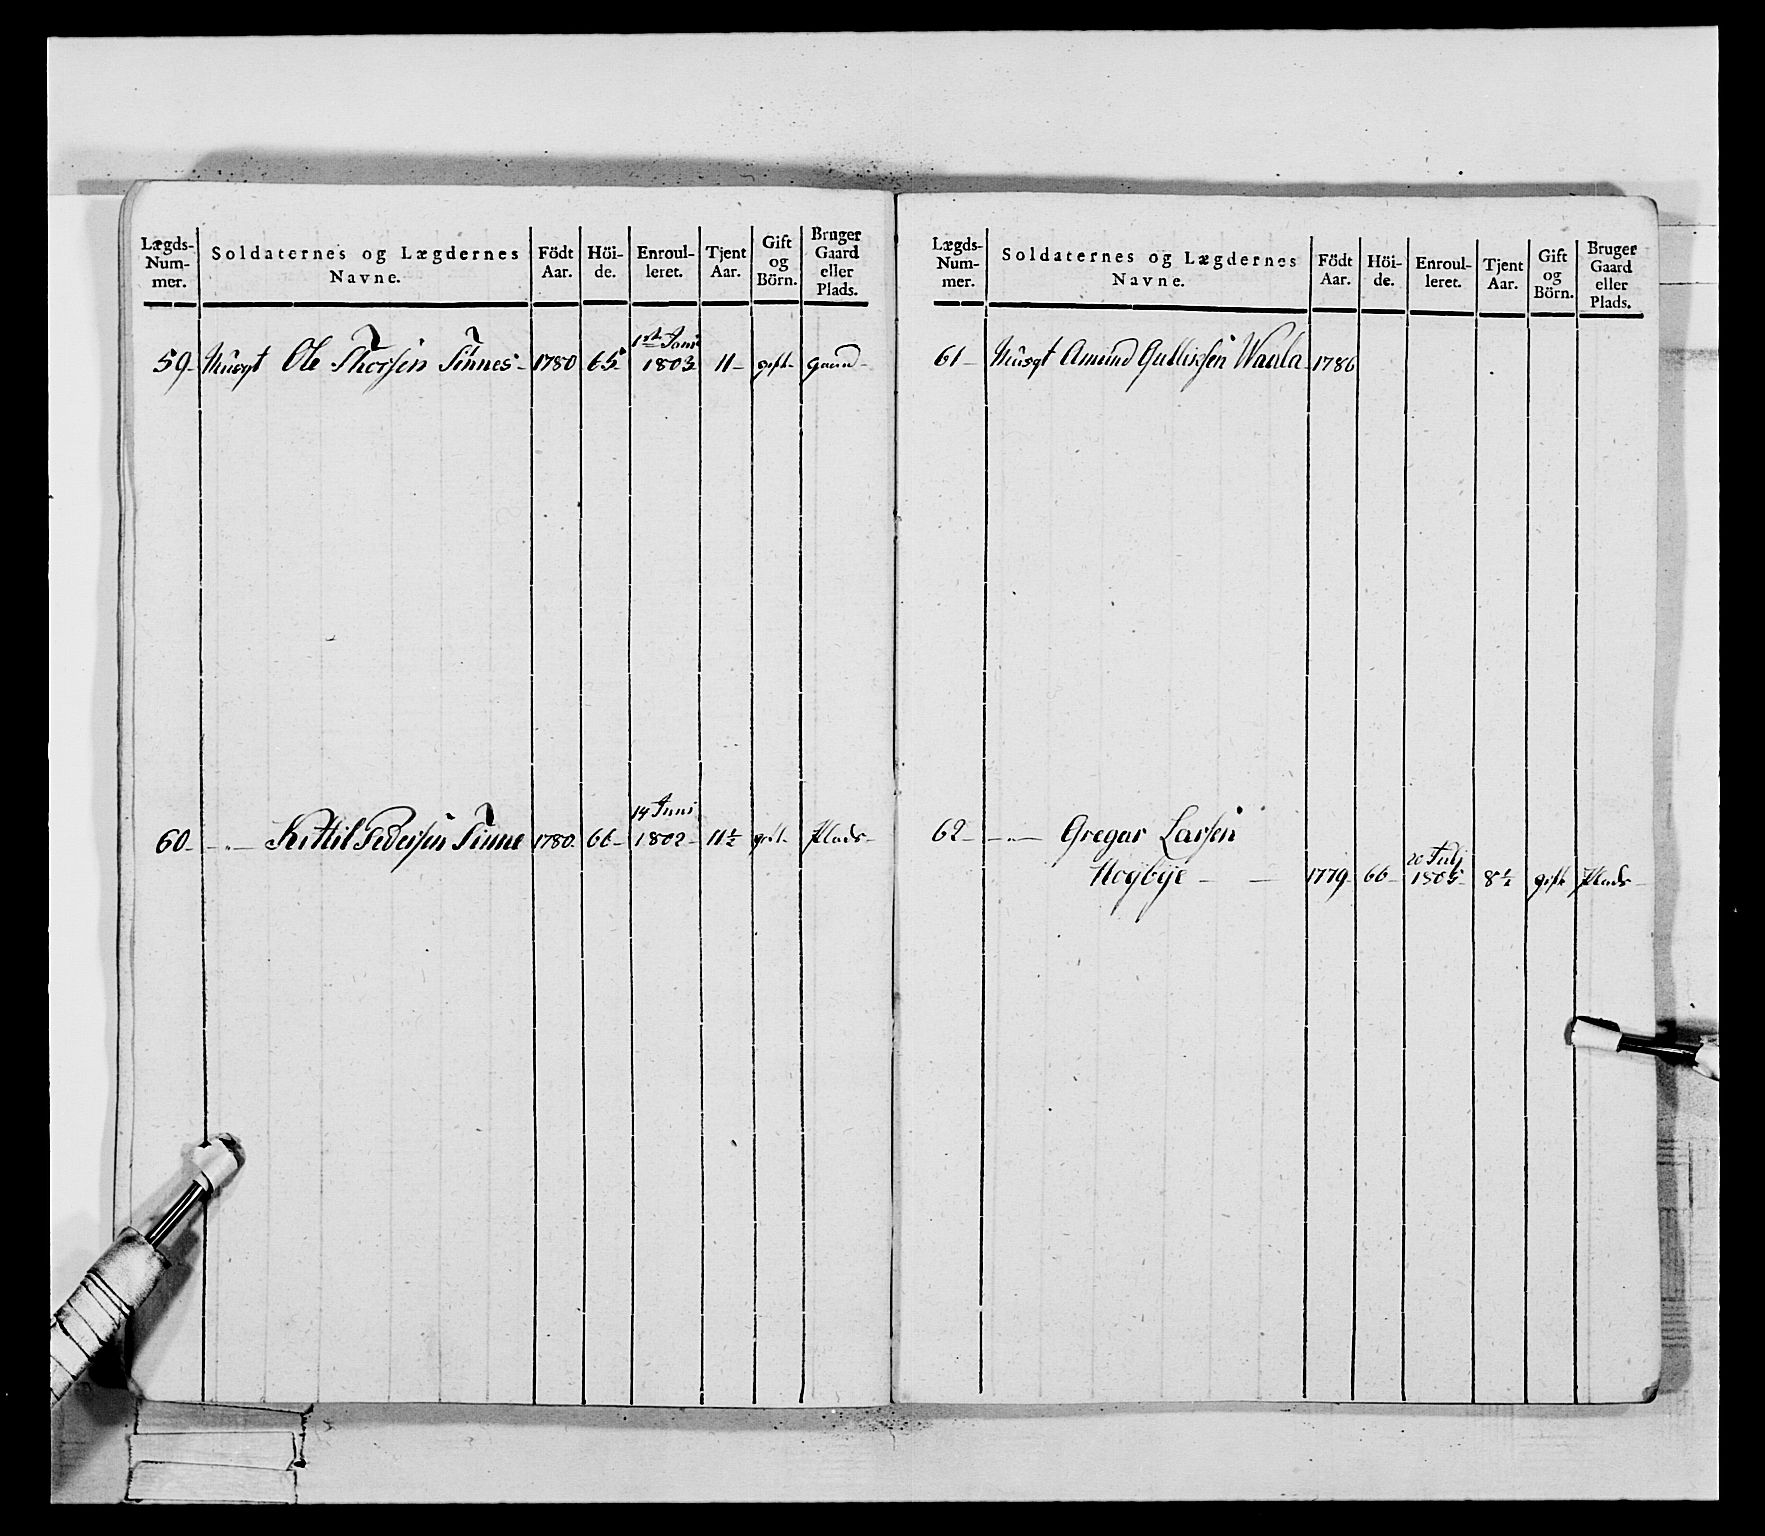 Lægds-
Num-
mer.
Soldaternes og Lægdernes
Navne.
Födt
Aar.
Höi-
de.
Enroul-
leret.
Tjent
Aar.
Gift
og
Börn.
Bruger
Gaard
eller
Plads.
1ste Janr
59- Musqt Ole Thorsen Tinnes- 1780 65- 1803 11- gift- gaard-
14 Juni
60- -"- Kittil Pedersen Tinne 1780- 66- 1802- 11½ gift- Plads-
Lægds-
Num-
mer.
Soldaternes og Lægdernes
Navne.
Födt
Aar.
Höi-
de.
Enroul-
leret.
Tjent
Aar.
Gift
og
Börn.
Bruger
Gaard
eller
Plads.
61- Musqt Amund Gullixsen Waala- 1786
62- -"- Gregar Larsen
20 Julj
Høybye - - 1779- 66- 1805- 8½ gift Plads-